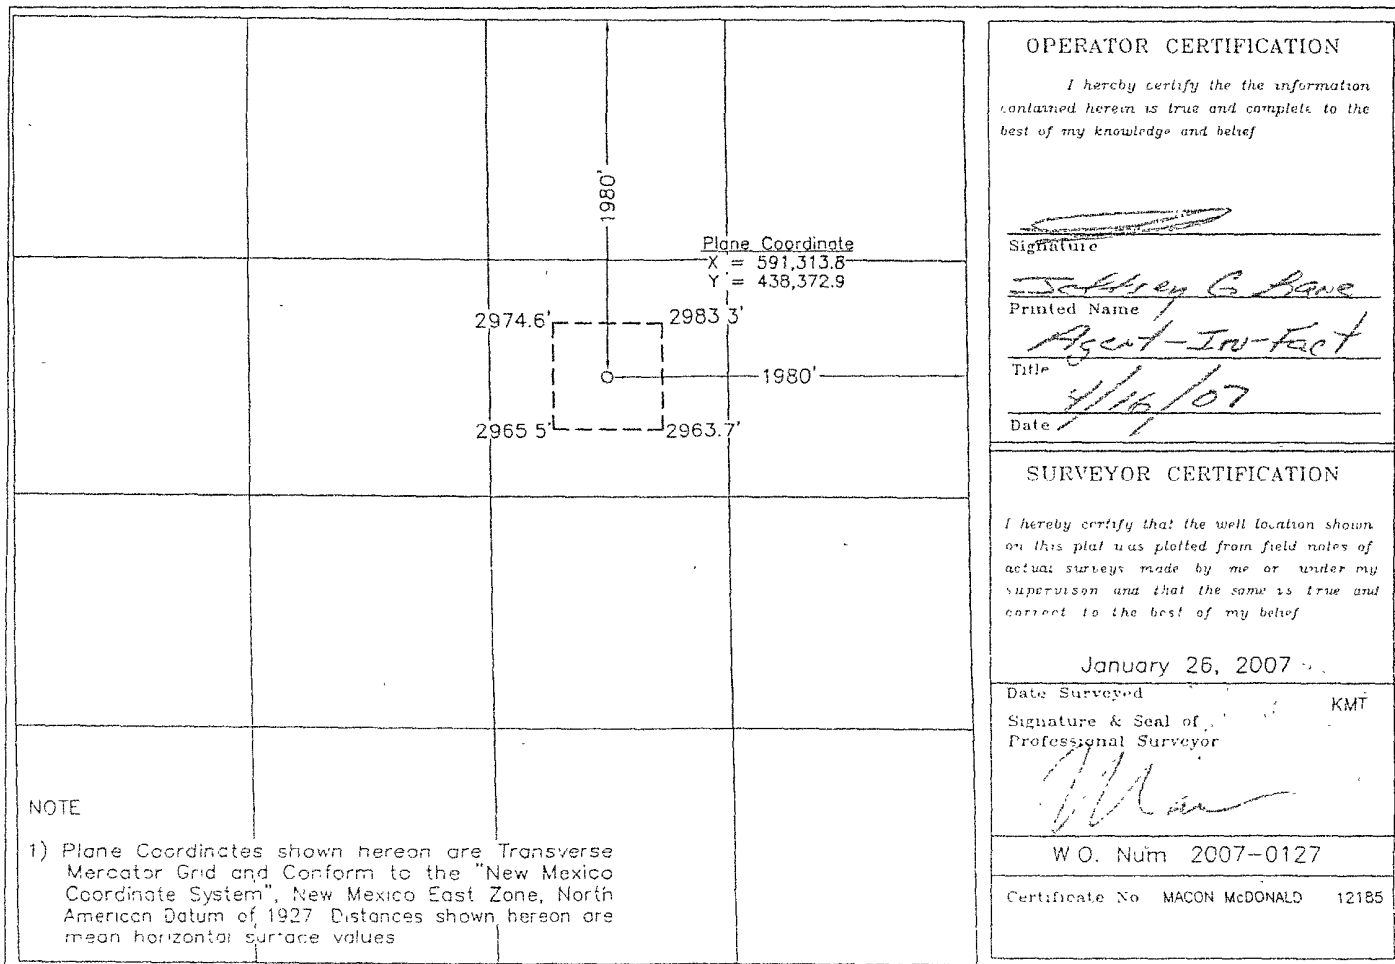 1980'
Plane Coordinate
X = 591,313.8
Y = 438,372.9
2974.6'
2983 3'
1980'
2965 5'
2963.7'
NOTE
1) Plane Coordinates shown hereon are Transverse
Mercator Grid and Conform to the "New Mexico
Coordinate System", New Mexico East Zone, North
American Datum of 1927 Distances shown hereon are
mean horizontal surface values
OPERATOR CERTIFICATION
I hereby certify the the information
contained herein is true and complete to the
best of my knowledge and belief
Signature
G
Printed Name
Agent-In-Fact
Title
4/16/07
Date
SURVEYOR CERTIFICATION
I hereby certify that the well location shown
on this plat was plotted from field notes of
actual surveys made by me or under my
supervison and that the same is true and
correct to the best of my belief
January 26, 2007
Date Surveyed
KMT
Signature & Seal of
Professional Surveyor
W O. Num 2007-0127
Certificate No MACON McDONALD 12185